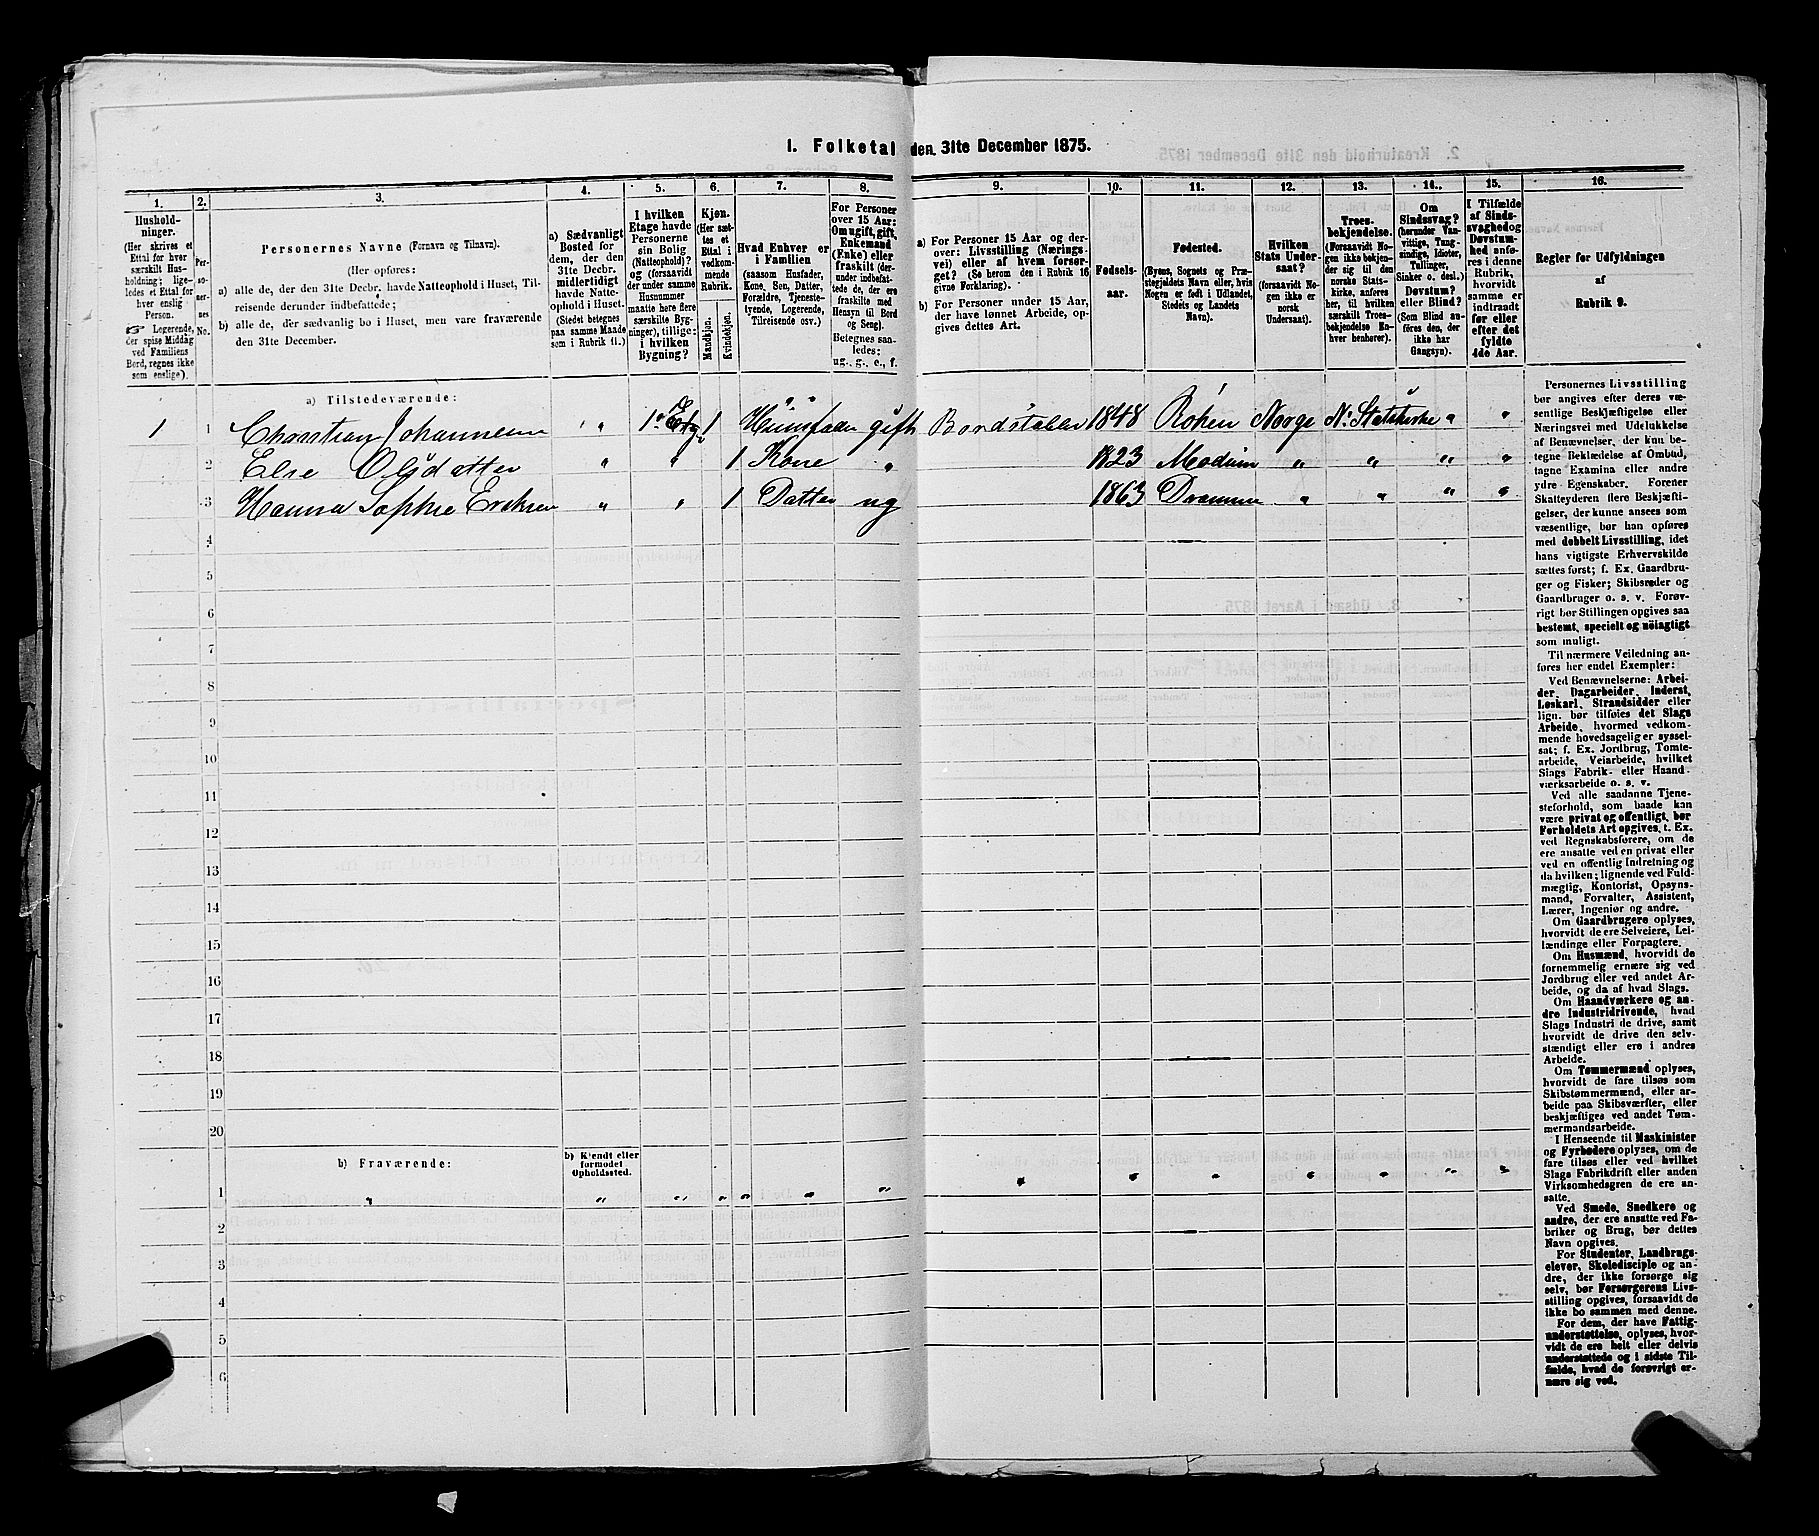 1. Folketal den 31te December 1875.
1. 2. 3. 4. 5. 6. 7. 8. 9. 10. 11. 12. 13. 14. 15. 16.
Hushold-
ninger.
(Her skrives et
Ettal for hver
særskilt Hus-
holdning; lige-
ledes et Ettal for
hver enslig
Person.
☞ Logerende,
der spise Middag
ved Familiens
Bord, regnes ikke
som enslige).
Per-
so-
ner-
nes
No.
Personernes Navne (Fornavn og Tilnavn).
(Her opføres:
a) alle de, der den 31te Decbr. havde Natteophold i Huset, Til-
reisende derunder indbefattede;
b) alle de, der sædvanlig bo i Huset, men vare fraværende
den 31te December.
a) Sædvanligt
Bosted for
dem, der den
31te Decbr.
midlertidigt
havde Natte-
ophold i Huset.
(Stedet betegnes
paa samme Maade
som i Rubrik 11.)
I hvilken
Etage havde
Personerne
sin Bolig
(Natteophold)?
og (forsaavidt
der under samme
Husnummer
maatte høre flere
særskilte Byg-
ninger), tillige:
i hvilken
Bygning?
Kjøn.
(Her sæt-
tes et
Ettal i
vedkom-
mende
Rubrik.
Mandkjøn.
Kvindekjøn.
Hvad Enhver er
i Familien
(saasom Husfader,
Kone, Søn, Datter,
Forældre, Tjeneste-
tyende, Logerende,
Tilreisende osv.)
For Personer
over 15 Aar:
Om ugift, gift,
Enkemand
(Enke) eller
fraskilt (der-
under indbefat-
tede de, der ere
fraskilte med
Hensyn til Bord
og Seng).
Betegnes saa-
ledes:
ug., g., e., f.
a) For Personer 15 Aar og der-
over: Livsstilling (Nærings-
vei) eller af hvem forsør-
get? (Se herom den i Rubrik 16
givne Forklaring).
b) For Personer under 15 Aar,
der have lønnet Arbeide, op-
gives dettes Art.
Fødsels-
aar.
Fødested.
(Byens, Sognets og Præ-
stegjeldets Navn eller, hvis
Nogen er født i Udlandet,
Stedets og Landets
Navn).
Hvilken
Stats Under-
saat?
(forsaavidt No-
gen ikke er
norsk
Undersaat).
Troes-
bekjendelse.
(Forsaavidt No-
gen ikke bekjen-
der sig til den
norske Stats-
kirke, anføres
her, til hvilken
særskilt Troes-
bekjendelse En-
hver henhører).
Om
Sindssvag?
(herunder Van-
vittige, Tung-
sindige, Idioter,
Tullinger,
Sinker o. desl.)
Døvstum?
eller Blind?
(Som Blind an-
føres den, der
ikke har
Gangsyn).
I Tilfælde
af Sinds-
svaghed og
Døvstum-
hed anfø-
res i denne
Rubrik,
hvorvidt
samme er
indtraadt
før eller
efter det
fyldte
4de Aar.
Regler for Udfyldningen
af
Rubrik 9.
a) Tilstedeværende:
1 1 Christian Johannesen „ 1e Etg. 1 Huusfader gift Bordstabler 1848 Røken Norge N. Statskirke „ „
2 Else Olsdatter „ „ 1 Kone „ 1823 Modum „ „ „ „
3 Hanna Sophie Eriksen „ „ 1 Datter ug 1863 Drammen „ „ „ „
4
5
6
7
8
9
10
11
12
13
14
15
16
17
18
19
20
b) Fraværende:
b) Kjendt eller
formodet
Opholdssted.
1 „ „ „ „ „ „ „ „ „ „ „ „ „ „
2
3
4
5
6
Personernes Livsstilling
bør angives efter deres væ-
sentlige Beskjæftigelse eller
Næringsvei med Udelukkelse
af Benævnelser, der kun be-
tegne Beklædelse af Ombud,
tagne Examina eller andre
ydre Egenskaber. Forener
Skatteyderen flere Beskjæfti-
gelser, der kunne ansees som
væsentlige, bør han opføres
med dobbelt Livsstilling, idet
hans vigtigste Erhvervskilde
sættes først; f. Ex. Gaardbru-
ger og Fisker; Skibsreder og
Gaardbruger o. s. v. Forøv-
rigt bør Stillingen opgives saa
bestemt, specielt og nöiagtigt
som muligt.
Til nærmere Veiledning an-
føres her endel Exempler:
Ved Benævnelserne: Arbei-
der, Dagarbeider, Inderst,
Løskarl, Strandsidder eller
lign. bør tilføies det Slags
Arbeide, hvormed vedkom-
mende hovedsagelig er syssel-
sat; f. Ex. Jordbrug, Tomte-
arbeide, Veiarbeide, hvilket
Slags Fabrik- eller Haand-
værksarbeide o. s. v.
Ved alle saadanne Tjene-
steforhold, som baade kan
være privat og offentligt, bør
Forholdets Art opgives, t. Ex.
ved Regnskabsførere, om de
ere ansatte ved en privat eller
ved en offentlig Indretning og
da hvilken; lignende ved Fuld-
mægtig, Kontorist, Opsyns-
mand, Forvalter, Assistent,
Lærer, Ingeniør og andre.
Om Gaardbrugere oplyses,
hvorvidt de ere Selveiere, Lei-
lændinge eller Forpagtere.
Om Husmænd, hvorvidt de
fornemmelig ernære sig ved
Jordbrug eller ved andet Ar-
beide, og da af hvad Slags.
Om Haandværkere og an-
dre Industridrivende, hvad
Slags Industri de drive, samt
hvorvidt de drive den selv-
stændigt eller ere i andres
Arbeide.
Om Tømmermænd oplyses,
hvorvidt de fare tilsøs som
Skibstømmermænd, eller ar-
beide paa Skibsværfter, eller
beskjæftiges ved andet Tøm-
mermandsarbeide.
I Henseende til Maskinister
og Fyrbødere oplyses, om de
fare tilsøs eller ved hvilket
Slags Fabrikdrift eller anden
Virksomhedsgren de ere an-
satte.
Ved Smede, Snedkere og
andre, der ere ansatte ved Fa-
briker og Brug, bør dettes
Navn opgives.
For Studenter, Landbrugs-
elever, Skoledisciple og an-
dre, der ikke forsørge sig
selv, bør Forsørgerens Livs-
stilling opgives, forsaavidt de
ikke bo sammen med denne.
For dem, der have Fattig-
understøttelse, oplyses, hvor-
vidt de ere helt eller delvis
understøttede og i sidste Til-
fælde, hvad de forøvrigt er-
nære sig ved.